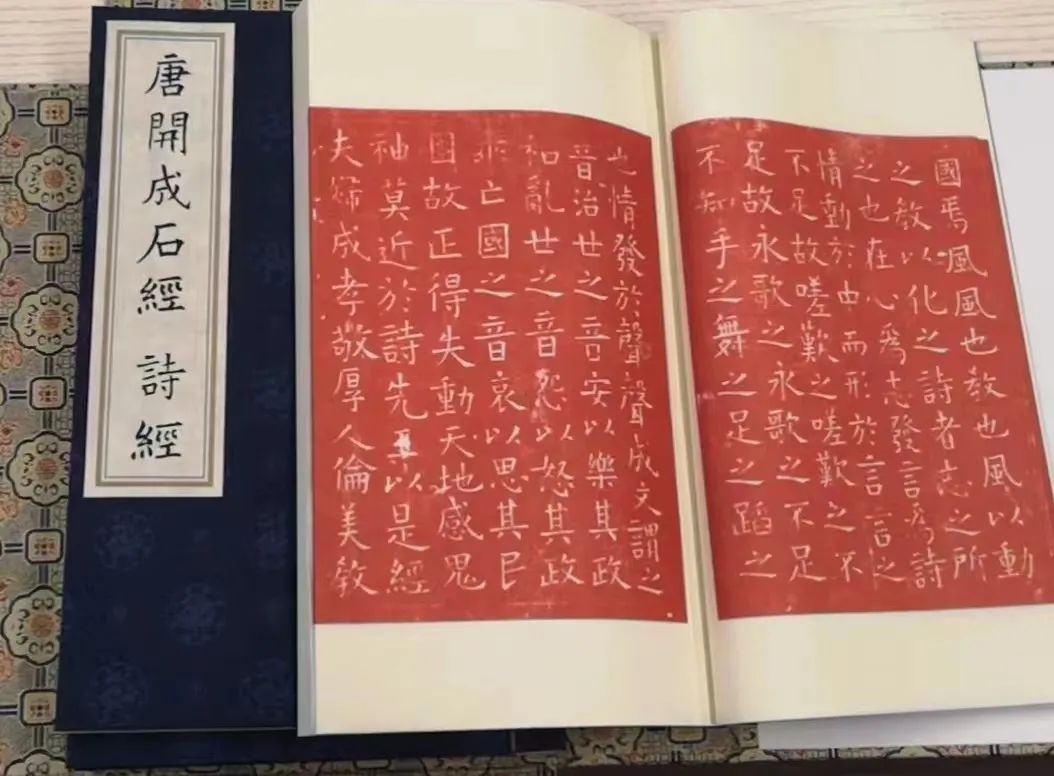 唐開成石經 詩經
國焉風風也教也風以動
之教以化之詩者志之所
之也在心為志發言為詩
情動於中而形於言言之
不足故嗟歎之嗟歎之不
足故永歌之永歌之不足
不知手之舞之足之蹈之
也情發於聲聲成文謂之
音治世之音安以樂其政
和亂世之音怨以怒其政
乖亡國之音哀以思其民
困故正得失動天地感鬼
神莫近於詩先王以是經
夫婦成孝敬厚人倫美教